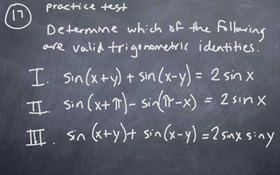 17 practice test
Determine which of the following
are valid trigonometric identities.
I. sin(x+y) + sin(x-y) = 2 sin x
II. sin(x+π) - sin(π-x) = 2 sin x
III. sin(x+y) + sin(x-y) = 2 sin x sin y